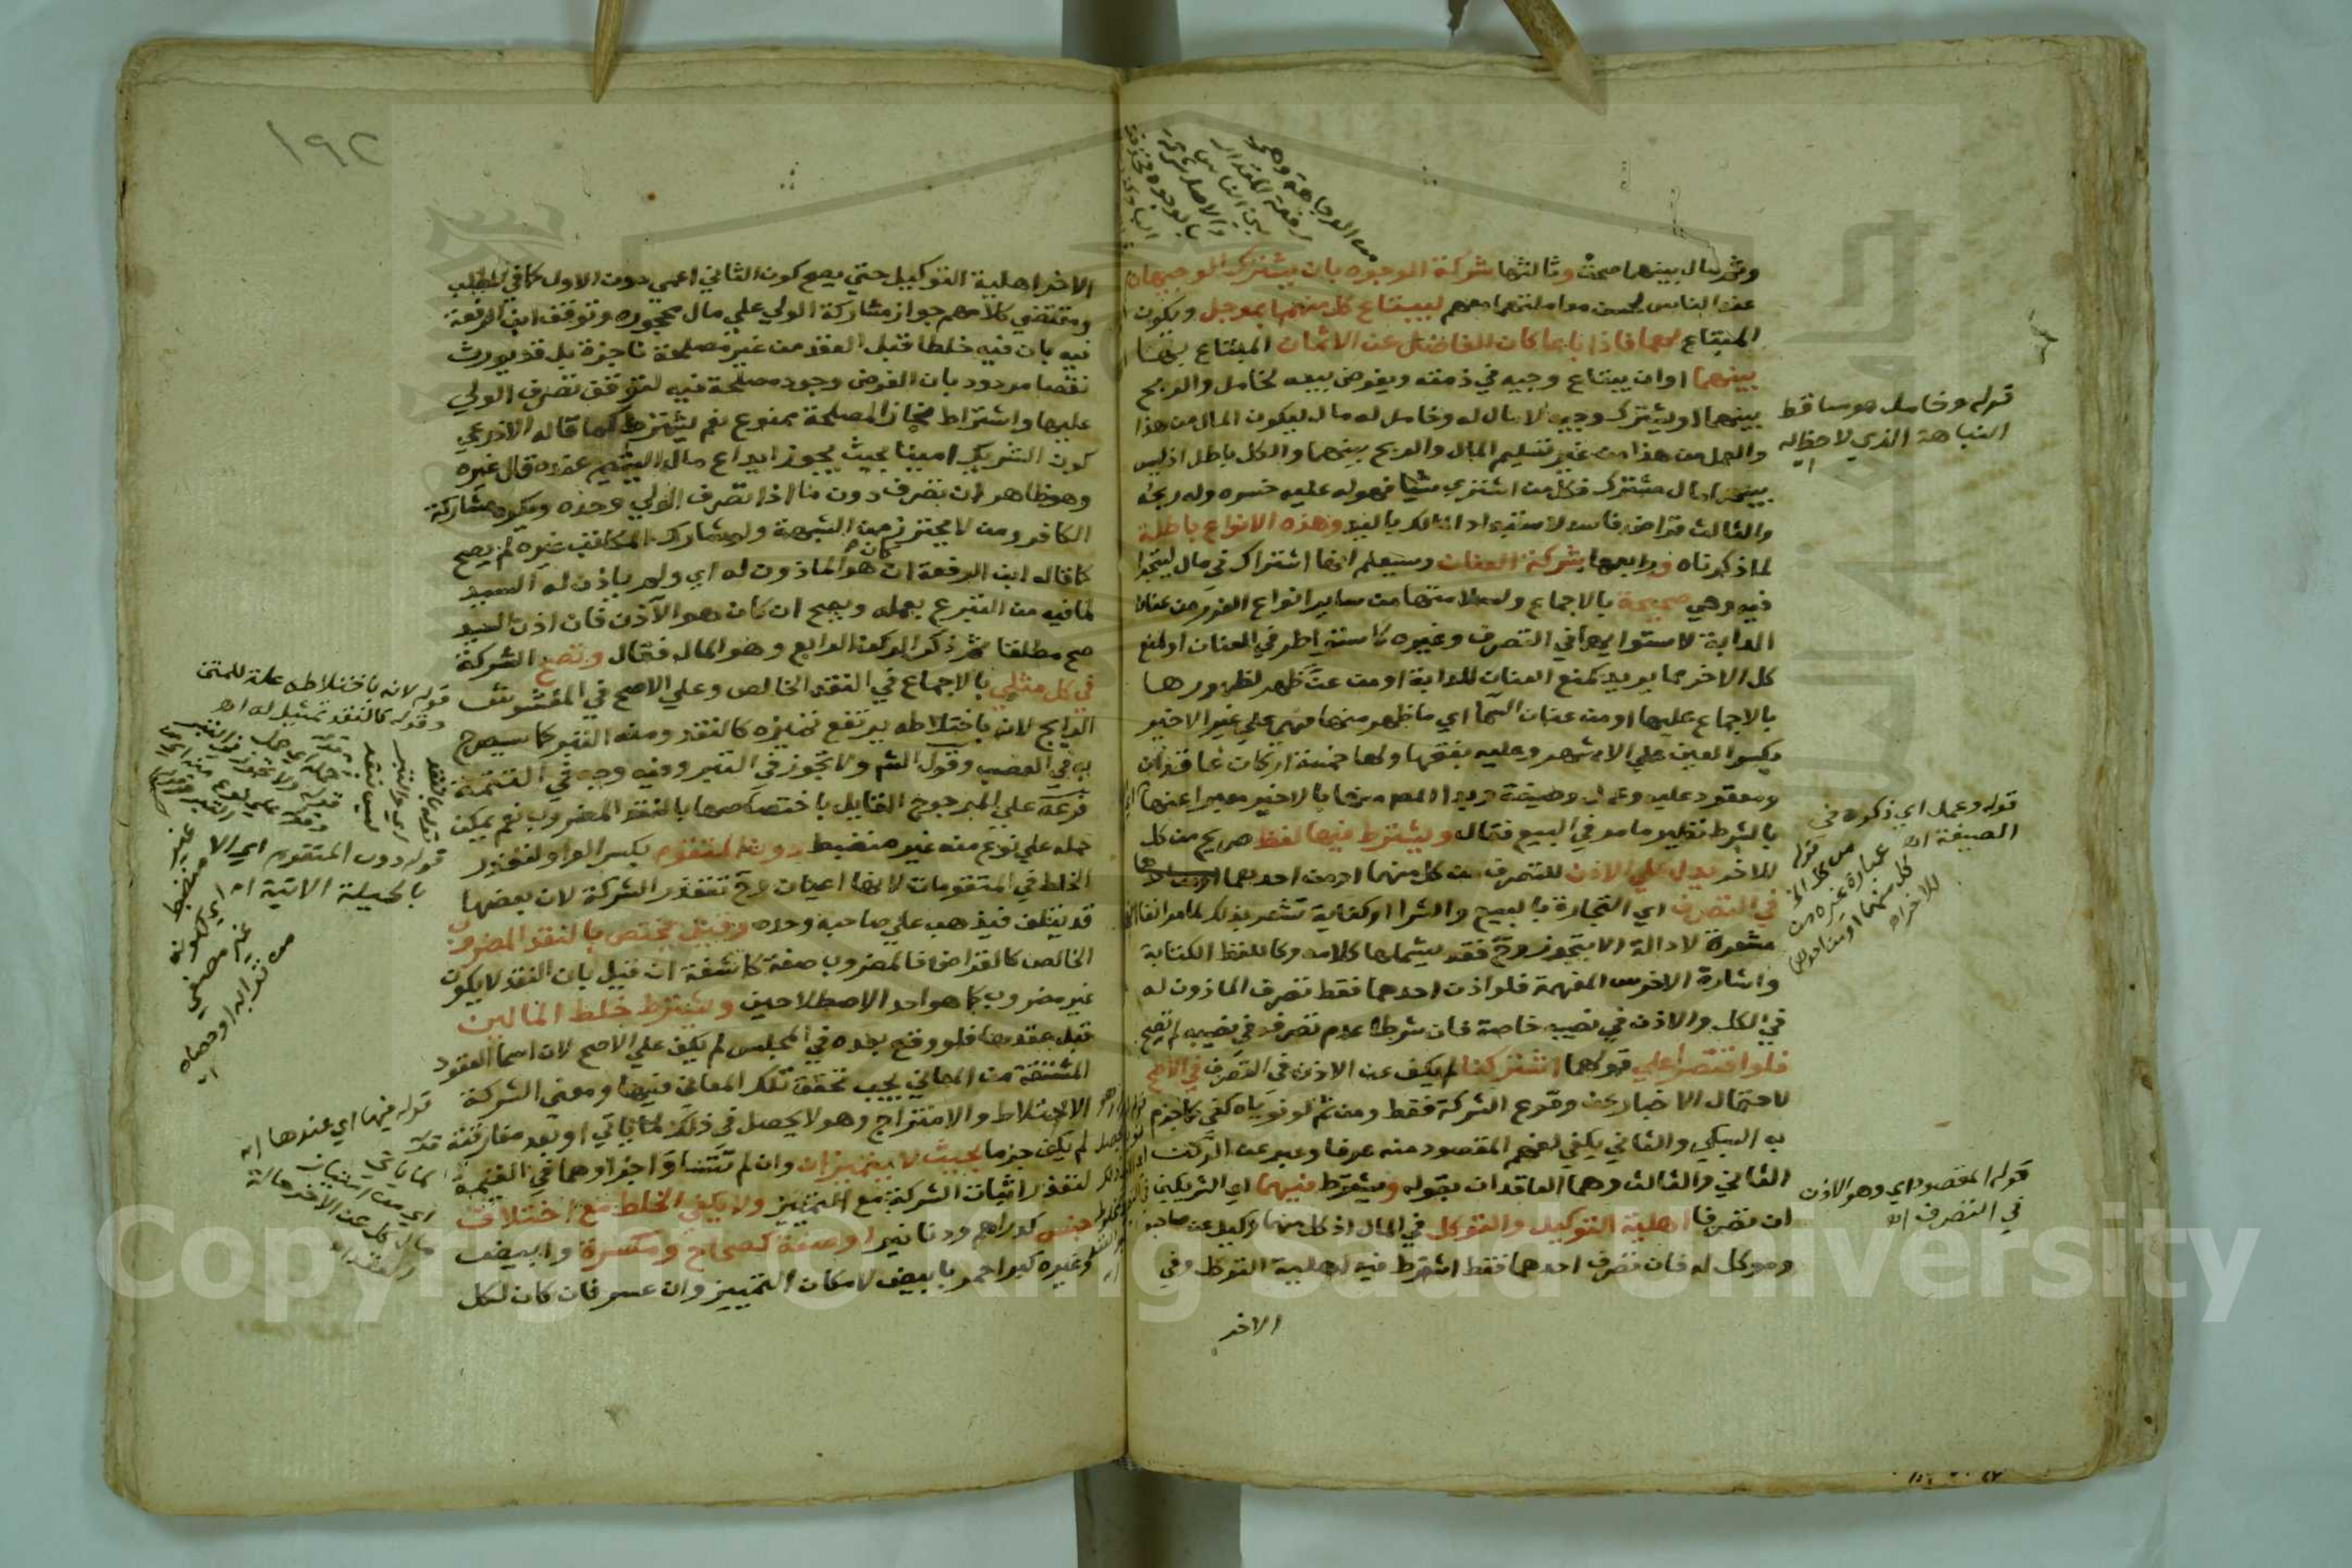 وثم مال بينهما صحت وثالثها شركة الوجوه بان يشترك الوجيهان
عند الناس لحسن معاملتهما معهم ليبتاع كل منهما بموجل ويكون
المبتاع لهما فاذا باعا كان الفاضل عن الاثمان المبتاع بها
بينهما او ان يبتاع وجيه في ذمته ويفوض بيعه لخامل والربح
بينهما او يشترك وجيه لا مال له وخامل له مال ليكون المال من هذا
والعمل من هذا من غير تسليم المال والربح بينهما والكل باطل اذ ليس
بينهما مال مشترك فكل من اشتري شيا فهو له عليه خسره وله ربحه
والثالث قراض فاسد لاستبداد المالك باليد وهذه الانواع باطلة
لما ذكرناه ورابعها شركة العنان وسيعلم انها اشتراك في مال ليتجرا
فيه وهي صحيحة بالاجماع ولسلامتها من ساير انواع الغرر من عنان
الدابة لاستوايهما في التصرف وغيره كاستوا طرفي العنان او لمنع
كل الاخر مما يريد كمنع العنان للدابة او من عن ظهر لظهورها
بالاجماع عليها او من عنان السما اي ما ظهر منها فهي علي غير الاخير
بكسر العين علي الاشهر وعليه بفتحها ولها خمسة اركان عاقدان
ومعقود عليه وعمل وصيغة وبدا المصـ منها بالاخير معبرا عنها
بالشرط نظير ما مر في البيع فقال ويشترط فيها لفظ صريح من كل
للاخر يدل علي الاذن للتصرف من كل منهما او من احدهما
في التصرف اي التجارة بالبيع والشرا او كناية تشعر بذلك لما مر انفا انها
مشعرة لا دالة الا بتجوز وح فقد يشملها كلامه وكاللفظ الكتابة
واشارة الاخرس المفهمة فلو اذن احدهما فقط تصرف الماذون له
في الكل والاذن في نصيبه خاصة فان شرطا عدم تصرفه في نصيبه لم تصح
فلو اقتصرا علي قولهما اشتركنا لم يكف عن الاذن في التصرف في الاصح
لاحتمال الاخبار عن وقوع الشركة فقط ومن ثم لو نوياه كفي كما جزم
به السبكي والثاني يكفي لفهم المقصود منه عرفا وعبر عن الركن
الثاني والثالث وهما العاقدان بقوله ويشترط فيهما اي الشريكين
ان تصرفا اهلية التوكيل والتوكل في المال اذ كل منهما وكيل عن صاحبه
وموكل له فان تصرف احدهما فقط اشترط فيه اهلية التوكل وفي
الاخر
قوله وخامل هو ساقط
النباهة الذي لا حظ له
اه
قوله وعمل اي ذكره في
الصيغة اه
قوله المقصود اي وهو الاذن
في التصرف اه
١٩٢
الاخر اهلية التوكيل حتي يصح كون الثاني اعمي دون الاول كما في المطلب
ومقتضي كلامهم جواز مشاركة الولي علي مال محجوره وتوقف ابن الرفعة
فيه بان فيه خلطا قبل العقد من غير مصلحة ناجزة بل قد يورث
نقصا مردود بان الفرض وجود مصلحة فيه لتوقف تصرف الولي
عليها واشتراط نجاز المصلحة ممنوع نعم يشترط كما قاله الاذرعي
كون الشريك امينا بحيث يجوز ايداع مال اليتيم عنده قال غيره
وهو ظاهر ان تصرف دون ما اذا تصرف الولي وحده ويكره مشاركة
الكافر ومن لا يحترز من الشبهة ولو شارك المكاتب غيره لم يصح
كما قاله ابن الرفعة ان كان هو الماذون له اي ولم ياذن له السيد
لما فيه من التبرع بعمله ويصح ان كان هو الآذن فان اذن السيد
صح مطلقا ثم ذكر الركن الرابع وهو المال فقال وتصح الشركة
في كل مثلي بالاجماع في النقد الخالص وعلي الاصح في المغشوش
الرايج لانه باختلاطه يرتفع تميزه كالنقد ومنه التبر كما سيصرح
به في الغصب وقول الشم ولا تجوز في التبر وفيه وجه في التتمة
فرعه علي المرجوح القايل باختصاصها بالنقد المضروب نعم يمكن
حمله علي نوع منه غير منضبط دون المتقوم بكسر الواو لتعذر
الخلط في المتقومات لانها اعيان وح تتعذر الشركة لان بعضها
قد يتلف فيذهب علي صاحبه وحده وقيل تختص بالنقد المضروب
الخالص كالقراض فالمضروب صفة كاشفة ان قيل بان النقد لا يكون
غير مضروب كما هو احد الاصطلاحين ويشترط خلط المالين
قبل عقدها فلو وقع بعده في المجلس لم يكف علي الاصح لان اسما العقود
المشتقة من المعاني يجب تحقق تلك المعاني فيها ومعني الشركة
الاختلاط والامتزاج وهو لا يحصل في ذلك لما ياتي او بعد مفارقته
لم يكف جزما بحيث لا يتميزان وان لم تتساو اجزاوهما في القيمة
لتعذر اثبات الشركة مع التمييز ولا يكفي الخلط مع اختلاف
جنس كدراهم ودنانير او صفة كصحاح ومكسرة وابيض
وغيره كبر احمر بابيض لامكان التمييز وان عسر فان كان لكل
قوله لانه باختلاطه علة للمتن
وقوله كالنقد تمثيل له اه
قوله دون المتقوم اي الا
بالحيلة الاتية اه
قوله فيها اي عندها اه
Copyright © King Saud University